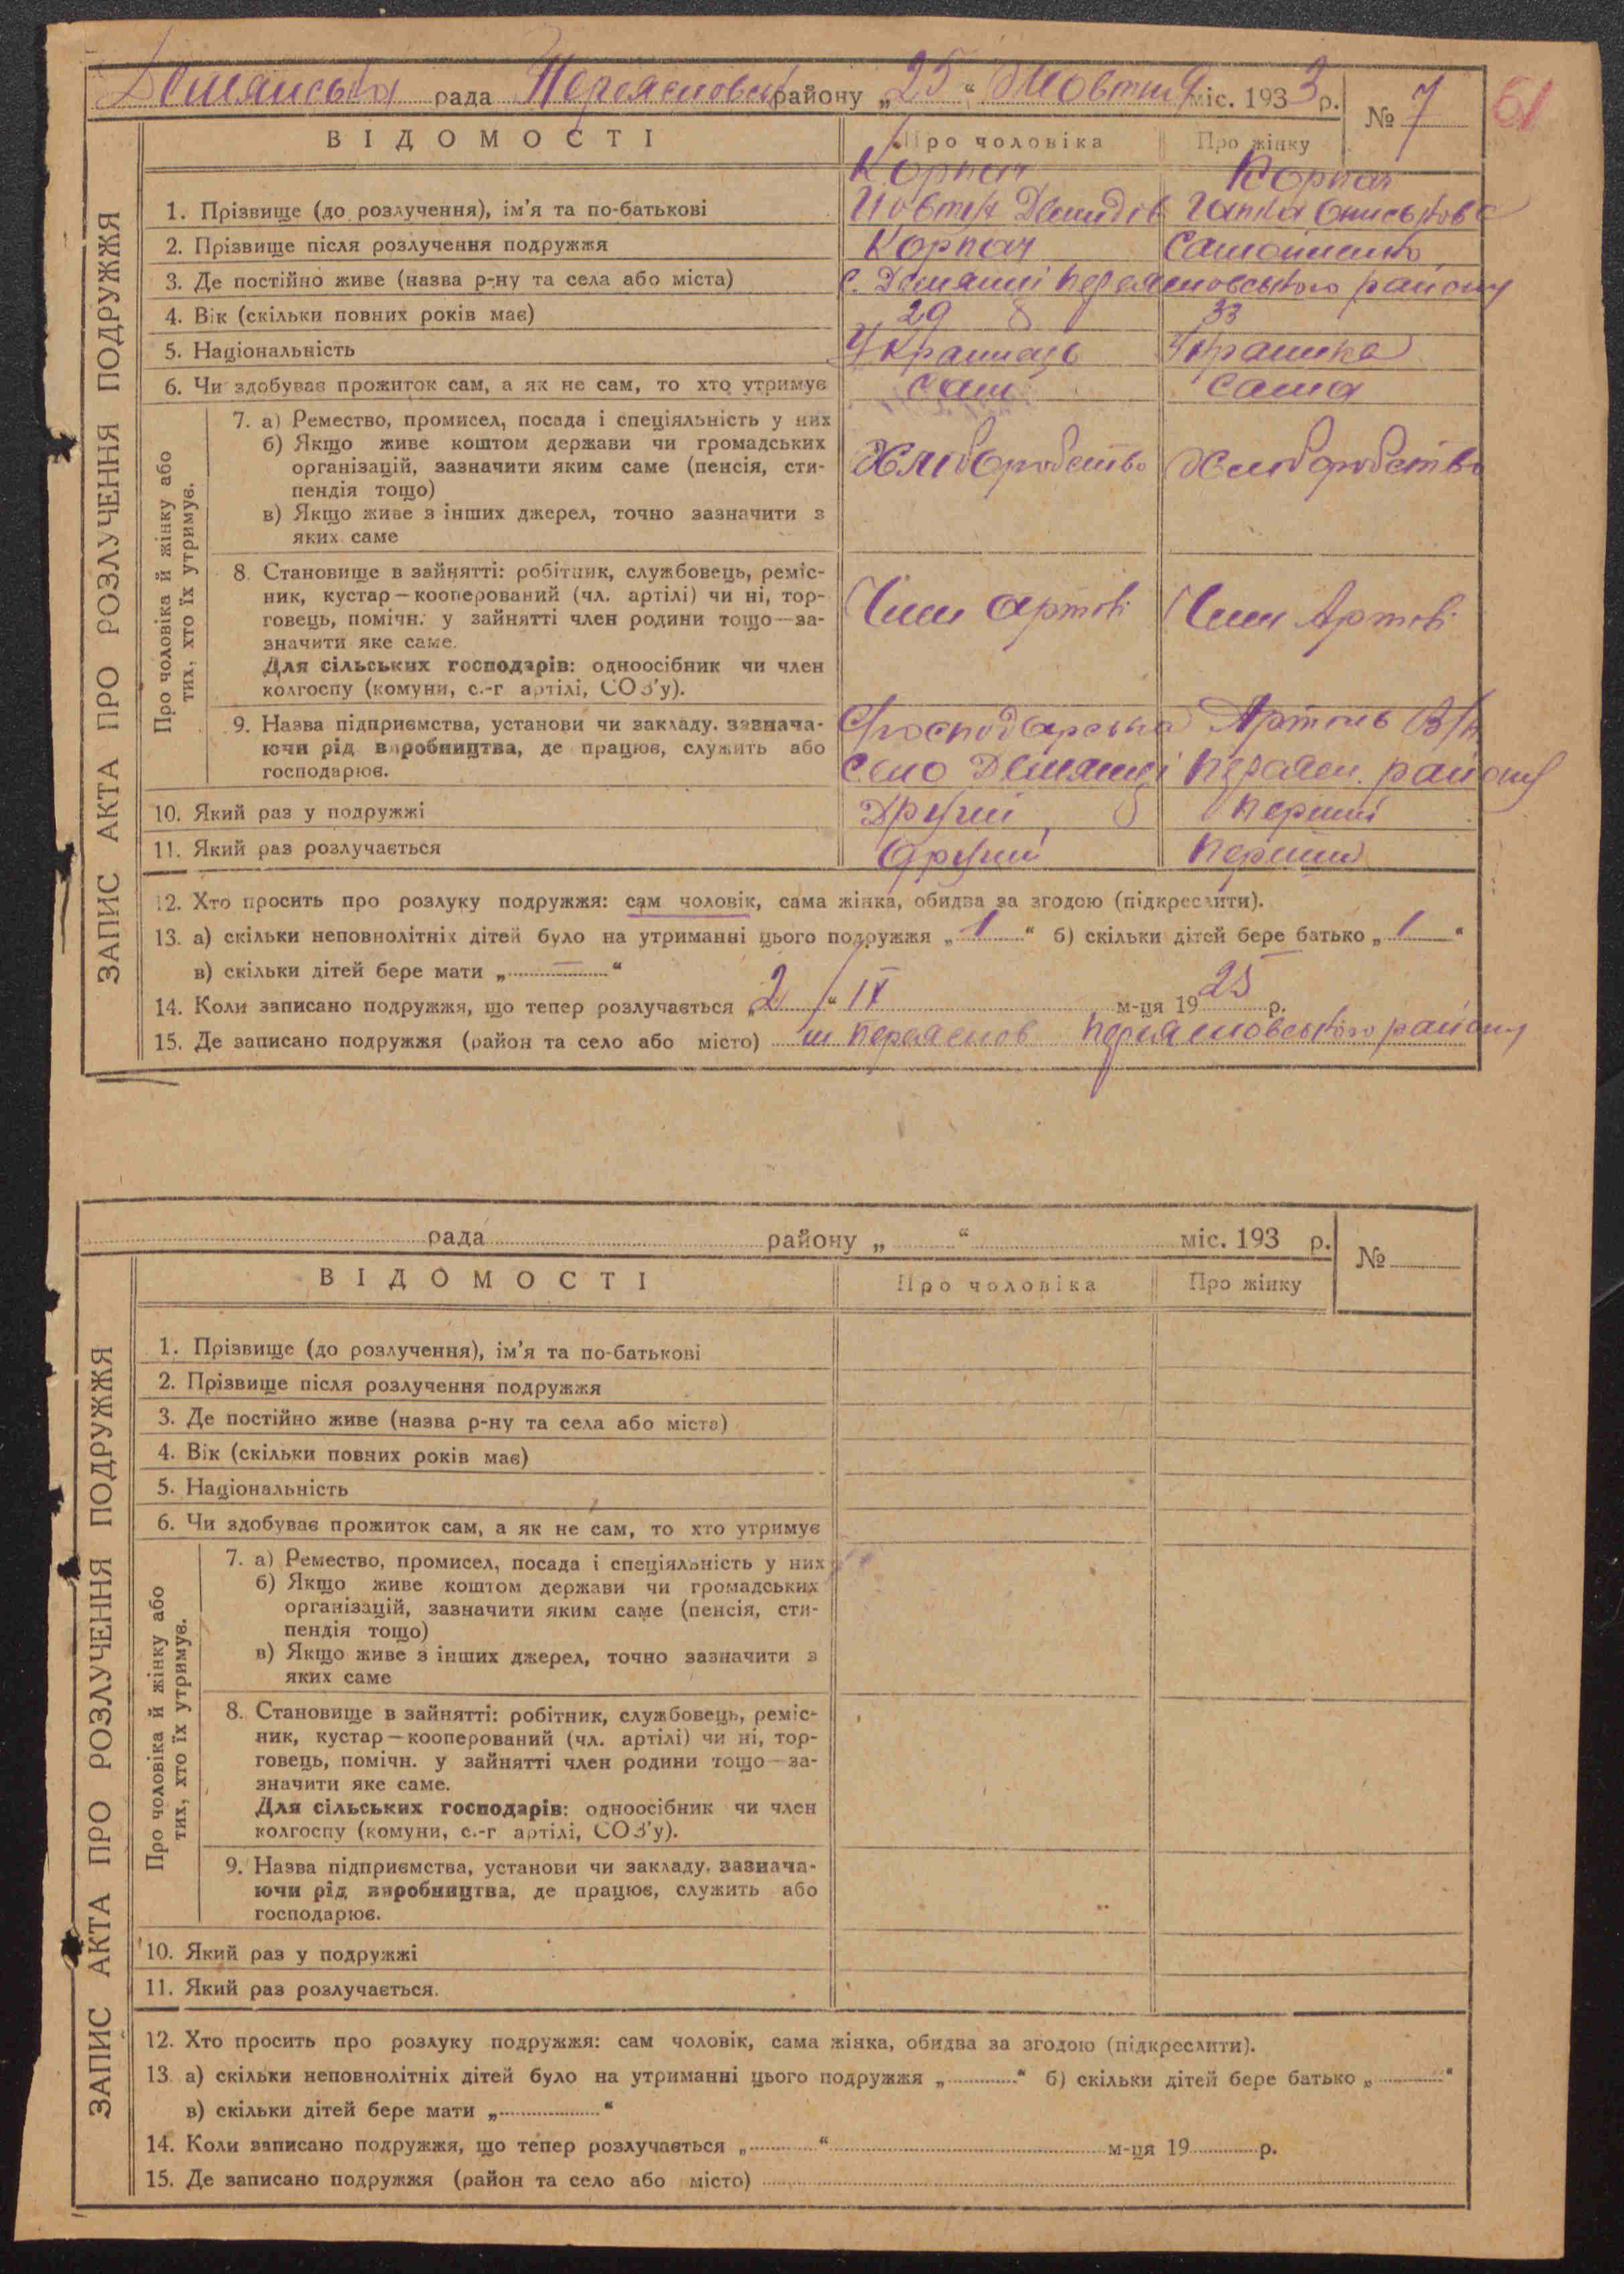 Демянська рада Переясловськ району „25“ Жовтня міс. 1933 р. № 7
61
ВІДОМОСТІ Про чоловіка Про жінку
ЗАПИС АКТА ПРО РОЗЛУЧЕННЯ ПОДРУЖЖЯ
Корпач Корпач
1. Прізвище (до розлучення), ім'я та по-батькові Йовтух Демидів Гапка Ониськова
2. Прізвище після розлучення подружжя Корпач Самойленко
3. Де постійно живе (назва р-ну та села або міста) с. Демянці Переясловського району
4. Вік (скільки повних років має) 29 33
5. Національність Українець Українка
6. Чи здобуває прожиток сам, а як не сам, то хто утримує сам сама
Про чоловіка й жінку або
тих, хто їх утримує.
7. а) Ремество, промисел, посада і спеціяльність у них
б) Якщо живе коштом держави чи громадських
організацій, зазначити яким саме (пенсія, сти- Хліборобство Хліборобство
пендія тощо)
в) Якщо живе з інших джерел, точно зазначити з
яких саме
8. Становище в зайнятті: робітник, службовець, реміс-
ник, кустар—кооперований (чл. артілі) чи ні, тор- Член артілі Член Артілі
говець, помічн. у зайнятті член родини тощо—за-
значити яке саме.
Для сільських господарів: одноосібник чи член
колгоспу (комуни, с.-г артілі, СОЗ'у).
9. Назва підприємства, установи чи закладу, зазнача- Сгосподарська Артіль
ючи рід виробництва, де працює, служить або село Демянці Переясл. району
господарює.
10. Який раз у подружжі Другий перший
11. Який раз розлучається другий перший
12. Хто просить про розлуку подружжя: сам чоловік, сама жінка, обидва за згодою (підкреслити).
13. а) скільки неповнолітніх дітей було на утриманні цього подружжя „1“ б) скільки дітей бере батько „1“
в) скільки дітей бере мати „—“
14. Коли записано подружжя, що тепер розлучається „2/“ IX м-ця 1925 р.
15. Де записано подружжя (район та село або місто) м Переяслов Переясловського району
рада району „ “ міс. 193 р. №
ВІДОМОСТІ Про чоловіка Про жінку
ЗАПИС АКТА ПРО РОЗЛУЧЕННЯ ПОДРУЖЖЯ
1. Прізвище (до розлучення), ім'я та по-батькові
2. Прізвище після розлучення подружжя
3. Де постійно живе (назва р-ну та села або міста)
4. Вік (скільки повних років має)
5. Національність
6. Чи здобуває прожиток сам, а як не сам, то хто утримує
Про чоловіка й жінку або
тих, хто їх утримує.
7. а) Ремество, промисел, посада і спеціяльність у них
б) Якщо живе коштом держави чи громадських
організацій, зазначити яким саме (пенсія, сти-
пендія тощо)
в) Якщо живе з інших джерел, точно зазначити з
яких саме
8. Становище в зайнятті: робітник, службовець, реміс-
ник, кустар—кооперований (чл. артілі) чи ні, тор-
говець, помічн. у зайнятті член родини тощо—за-
значити яке саме.
Для сільських господарів: одноосібник чи член
колгоспу (комуни, с.-г артілі, СОЗ'у).
9. Назва підприємства, установи чи закладу, зазнача-
ючи рід виробництва, де працює, служить або
господарює.
10. Який раз у подружжі
11. Який раз розлучається.
12. Хто просить про розлуку подружжя: сам чоловік, сама жінка, обидва за згодою (підкреслити).
13. а) скільки неповнолітніх дітей було на утриманні цього подружжя „ “ б) скільки дітей бере батько „ “
в) скільки дітей бере мати „ “
14. Коли записано подружжя, що тепер розлучається „ “ м-ця 19 р.
15. Де записано подружжя (район та село або місто)